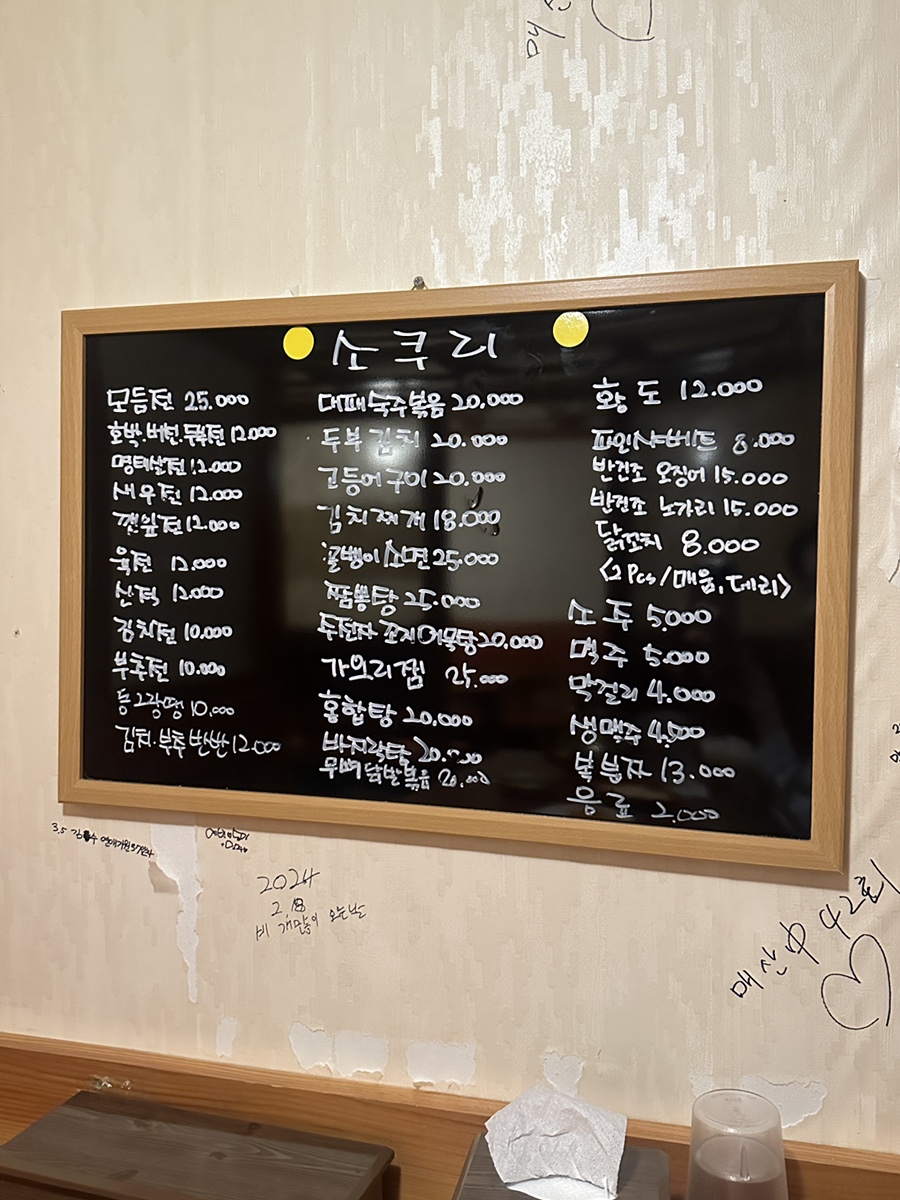 소쿠리
모듬전 25.000
호박.버섯.두부전 12.000
명태살전 12.000
새우전 12.000
깻잎전 12.000
육전 12.000
산적 12.000
김치전 10.000
부추전 10.000
동그랑땡 10,000
김치.부추 반반 12.000
대패숙주볶음 20,000
두부김치 20.000
고등어구이 20,000
김치찌개 18.000
골뱅이소면 25.000
짬뽕탕 25.000
주전자 꼬지어묵탕 20,000
가오리찜 25.000
홍합탕 20,000
바지락탕 20.000
무뼈닭발볶음 20,000
황도 12.000
파인샤베트 8.000
반건조 오징어 15.000
반건조 노가리 15.000
닭꼬치 8.000
<2Pcs/매움,데리>
소주 5,000
맥주 5.000
막걸리 4.000
생맥주 4,500
복분자 13.000
음료 2,000
2024
2.18
비 개많이 오는날
매산中 42회